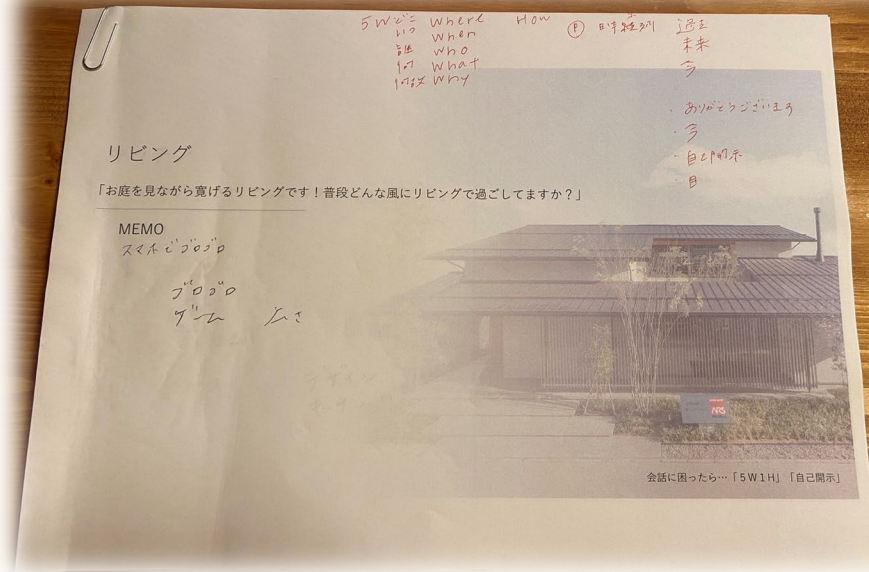 5W どこ Where How
いつ When
誰 Who
何 What
何故 Why
P 時系列 過去
未来
今
・ありがとうございます
・今
・自己開示
・目
リビング
「お庭を見ながら寛げるリビングです！普段どんな風にリビングで過ごしてますか？」
MEMO
スマホでゴロゴロ
ゴロゴロ
ゲーム 広さ
会話に困ったら…「5W1H」「自己開示」